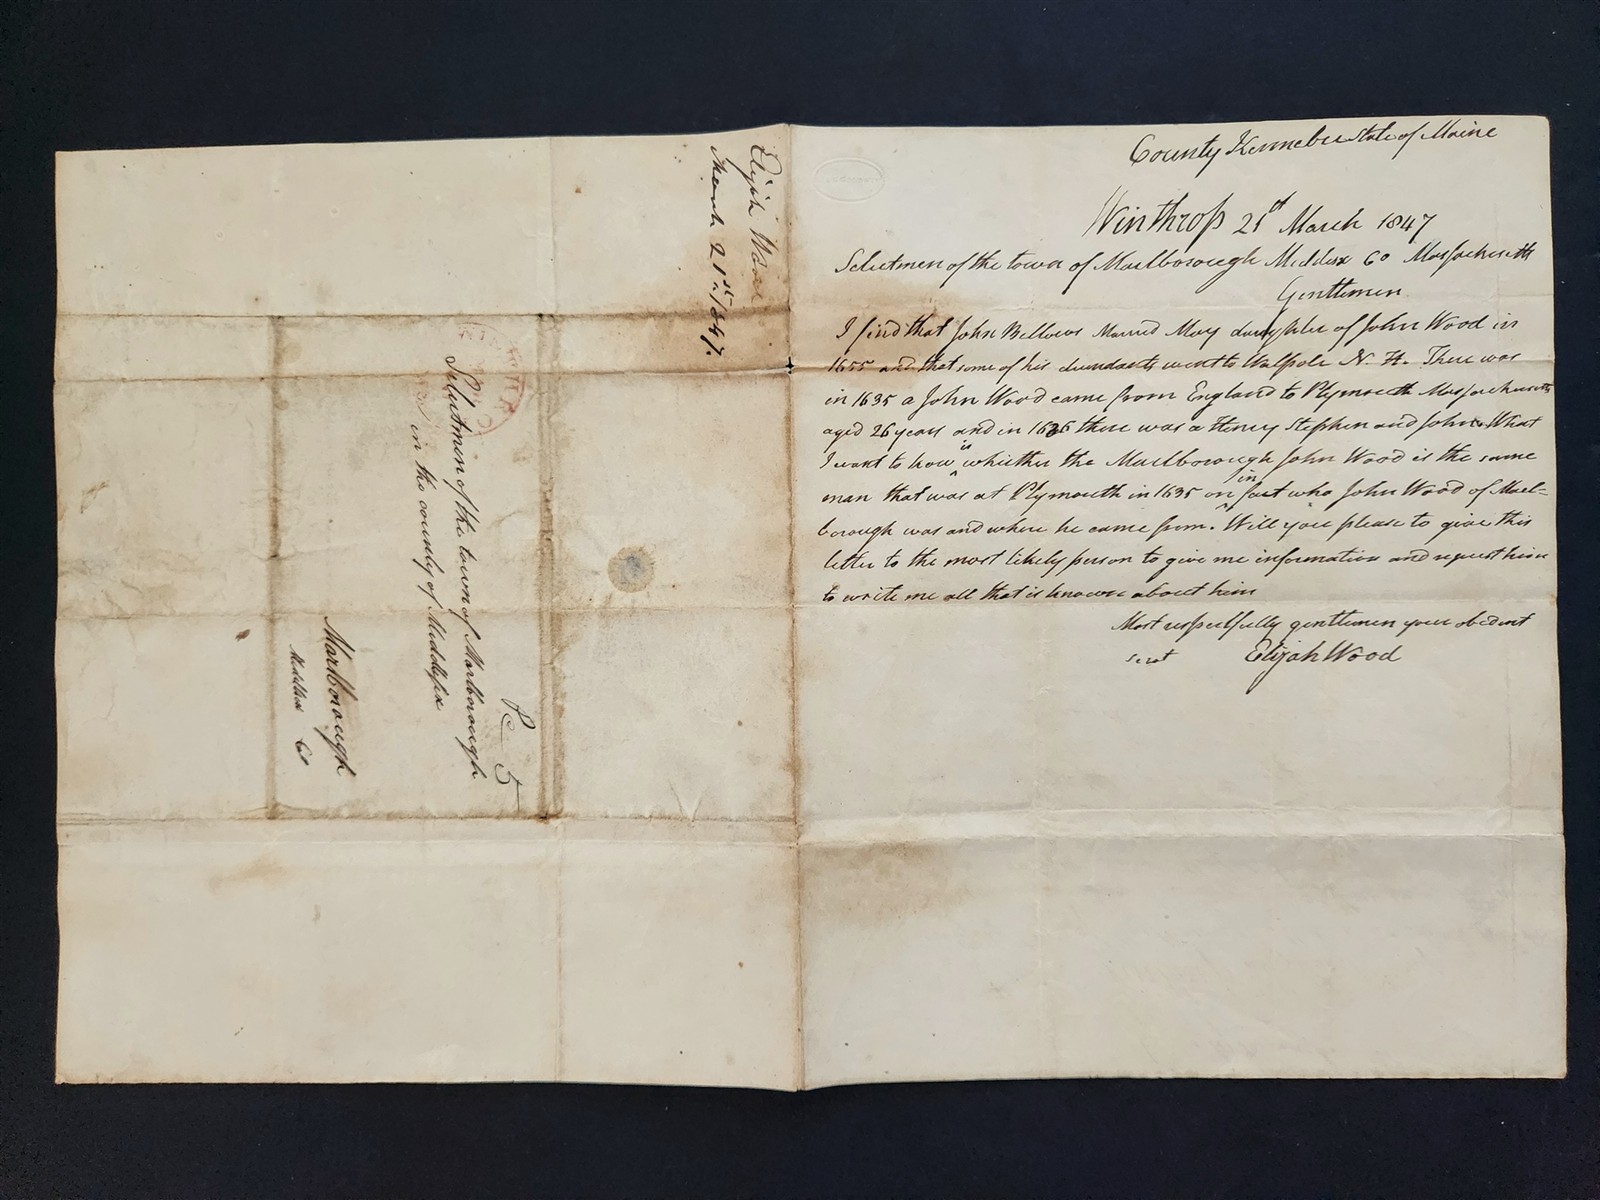 County Kennebec State of Maine
Winthrop 21st March 1847
Selectmen of the town of Marlborough Middx Co Massachusetts
Gentlemen
I find that John Bellows Married Mary daughter of John Wood in
1655 and that some of his descendants went to Walpole N. H. There was
in 1635 a John Wood came from England to Plymouth Massachusetts
aged 26 years and in 1636 there was a Henry Stephen and John. What
I want to know is whither the Marlborough John Wood is the same
man that was at Plymouth in 1635 or in fact who John Wood of Marl=
borough was and where he came from. Will you please to give this
letter to the most likely person to give me information and request him
to write me all that is known about him
Most respectfully gentlemen your obedient
Servt Elijah Wood
Elijah Wood
March 21st 1847.
Pd 5
Selectmen of the town of Marlborough
in the county of Middlesex
Marlborough
Middlesex Co